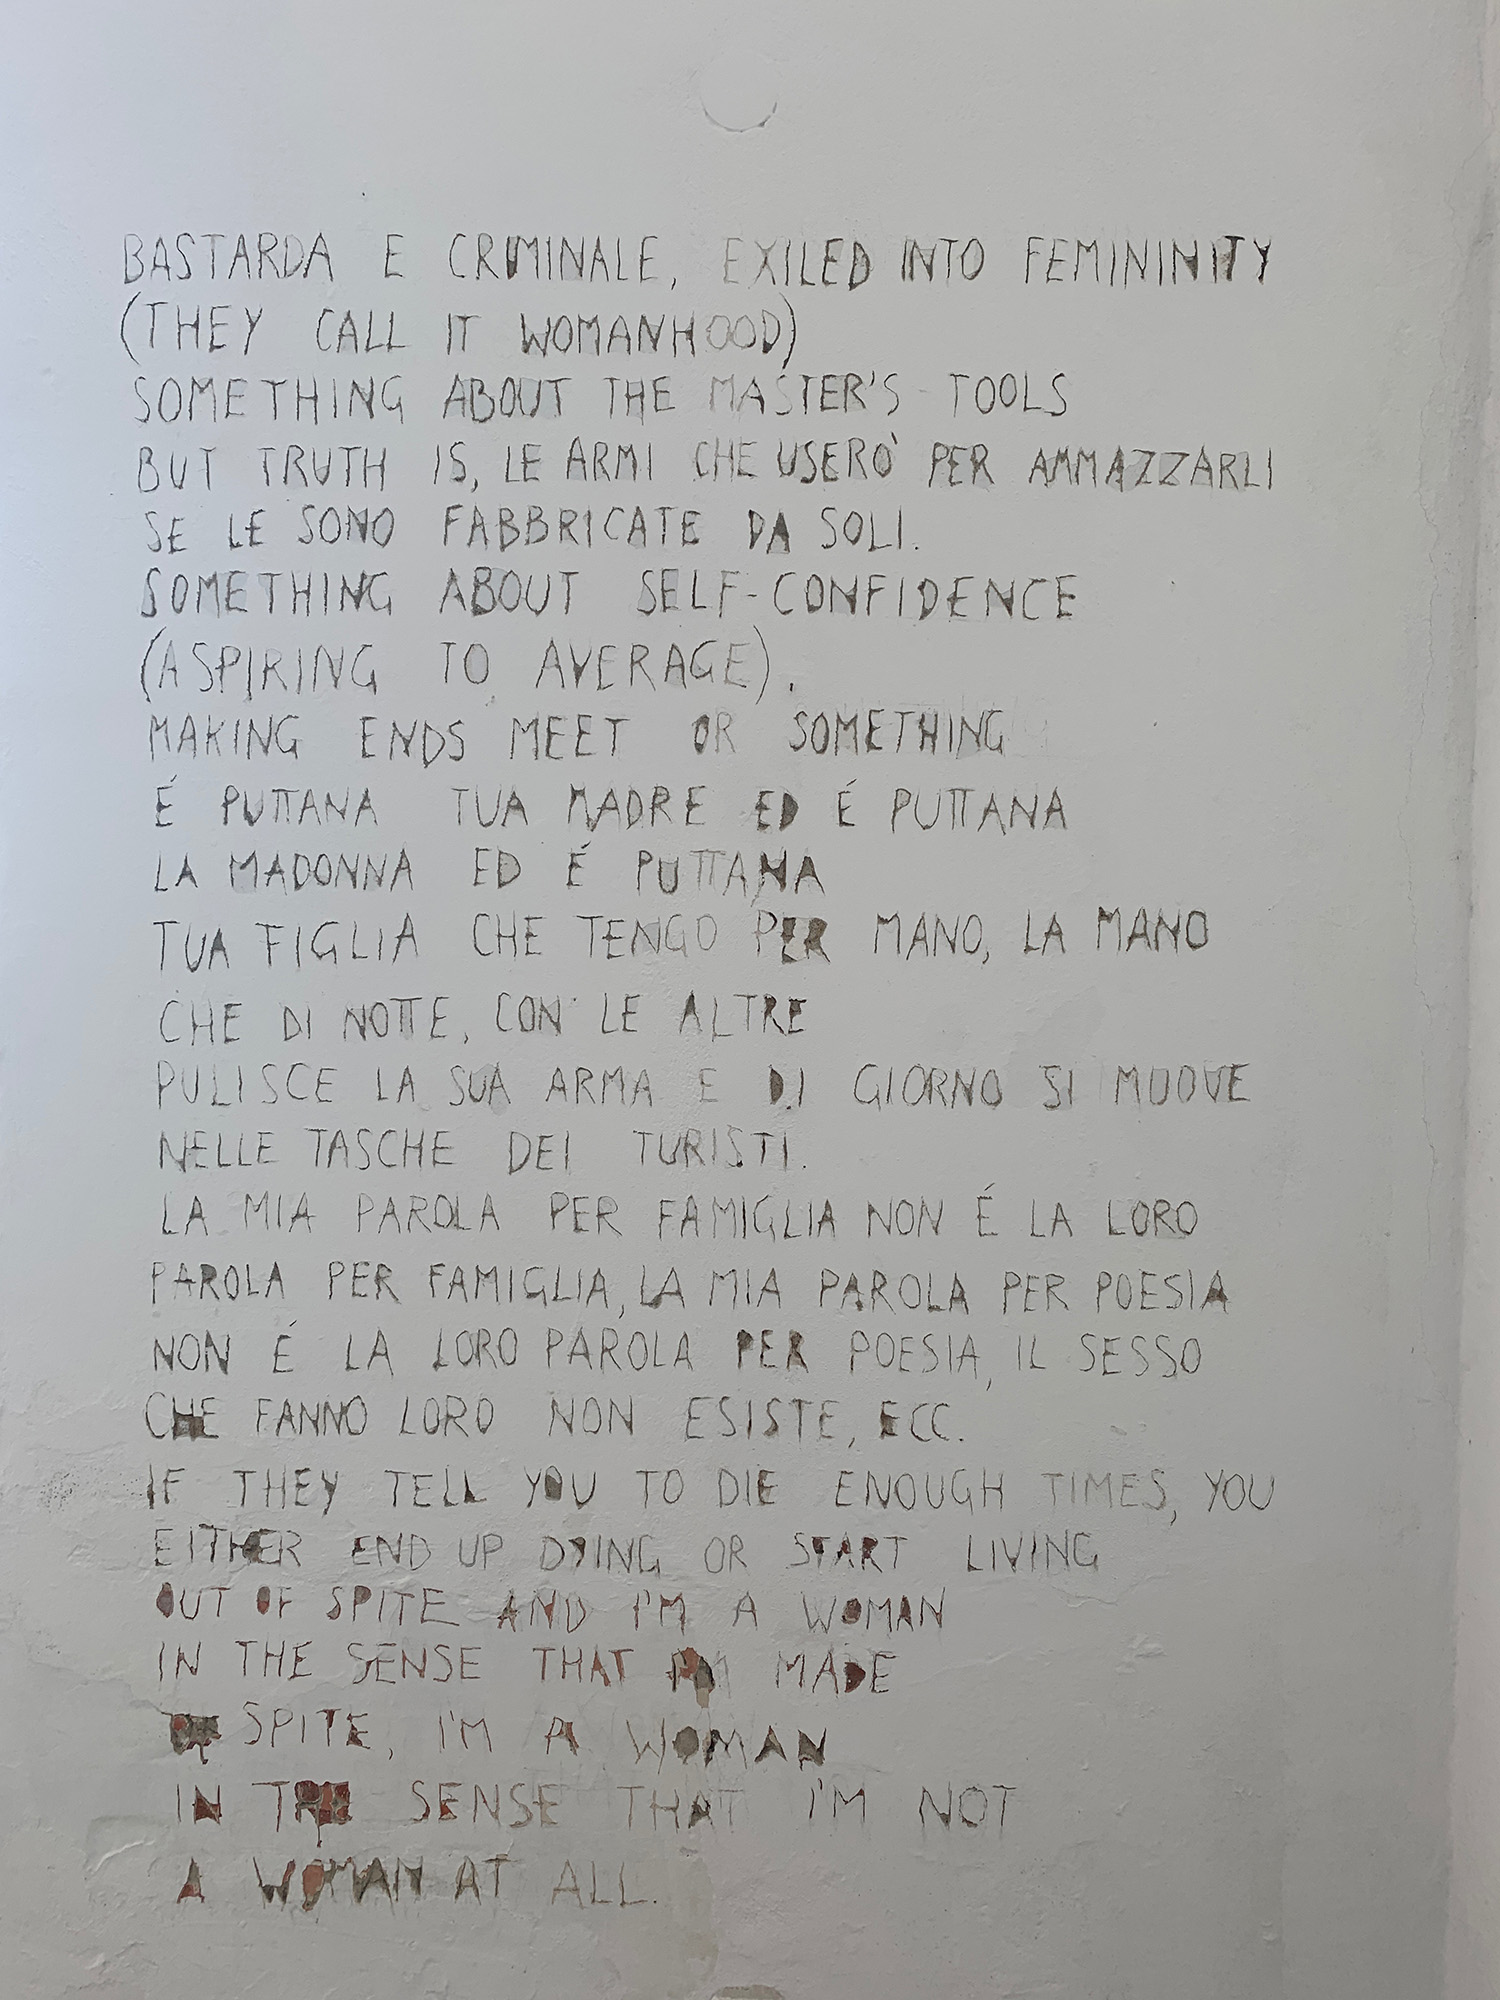 BASTARDA E CRIMINALE, EXILED INTO FEMININITY
(THEY CALL IT WOMANHOOD)
SOMETHING ABOUT THE MASTER'S TOOLS
BUT TRUTH IS, LE ARMI CHE USERÒ PER AMMAZZARLI
SE LE SONO FABBRICATE DA SOLI.
SOMETHING ABOUT SELF-CONFIDENCE
(ASPIRING TO AVERAGE).
MAKING ENDS MEET OR SOMETHING
É PUTTANA TUA MADRE ED É PUTTANA
LA MADONNA ED É PUTTANA
TUA FIGLIA CHE TENGO PER MANO, LA MANO
CHE DI NOTTE, CON LE ALTRE
PULISCE LA SUA ARMA E DI GIORNO SI MUOVE
NELLE TASCHE DEI TURISTI.
LA MIA PAROLA PER FAMIGLIA NON É LA LORO
PAROLA PER FAMIGLIA, LA MIA PAROLA PER POESIA
NON É LA LORO PAROLA PER POESIA, IL SESSO
CHE FANNO LORO NON ESISTE, ECC.
IF THEY TELL YOU TO DIE ENOUGH TIMES, YOU
EITHER END UP DYING OR START LIVING
OUT OF SPITE AND I'M A WOMAN
IN THE SENSE THAT I'M MADE
OF SPITE, I'M A WOMAN
IN THE SENSE THAT I'M NOT
A WOMAN AT ALL.